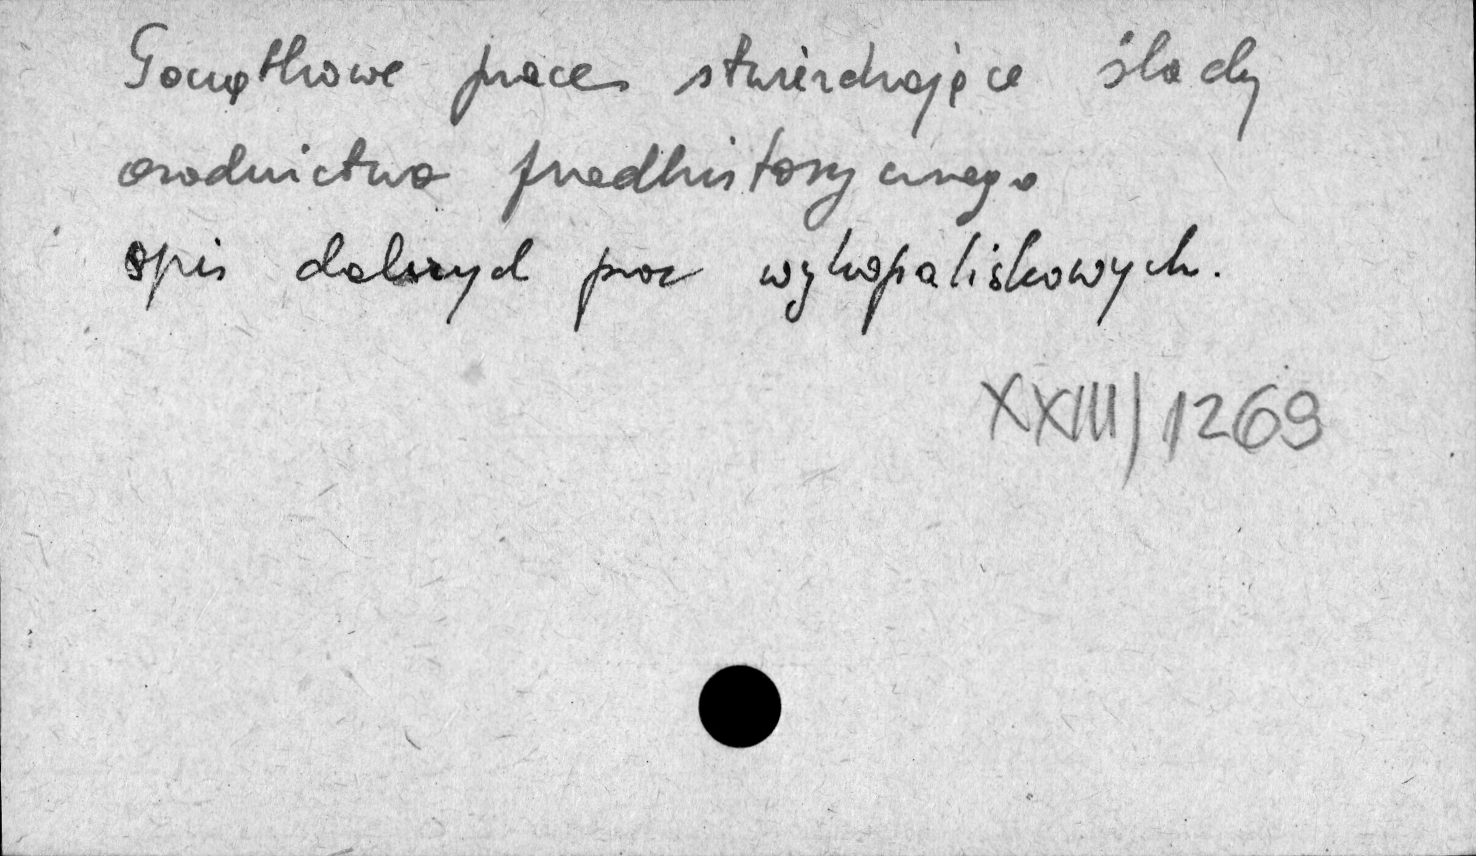 Początkowe prace stwierdzające ślady
osadnictwa przedhistorycznego
opis dalszych prac wykopaliskowych.
XXIII/1269